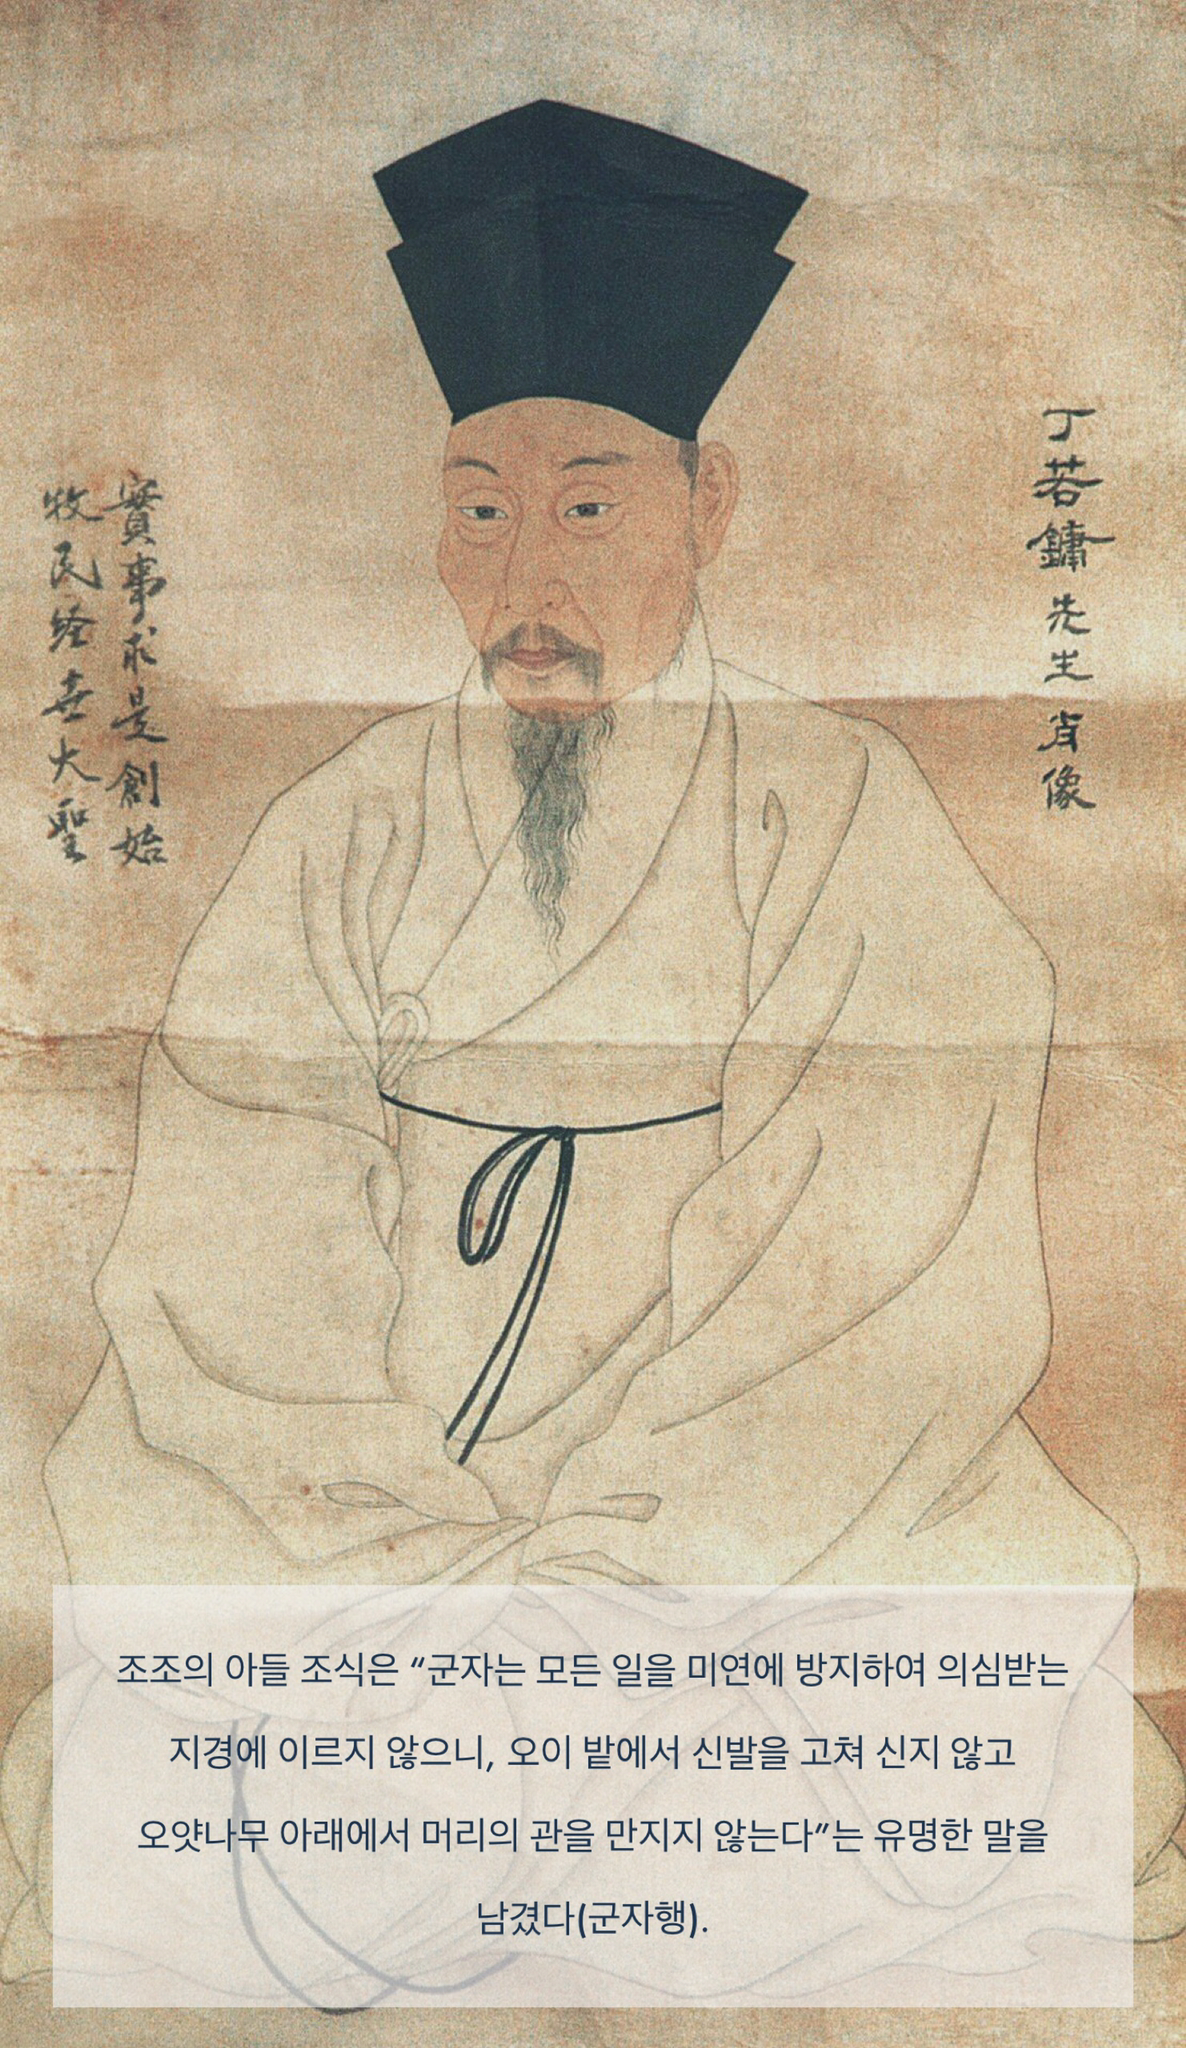 丁若鏞先生肖像
實事求是創始
牧民経世大聖
조조의 아들 조식은 “군자는 모든 일을 미연에 방지하여 의심받는
지경에 이르지 않으니, 오이 밭에서 신발을 고쳐 신지 않고
오얏나무 아래에서 머리의 관을 만지지 않는다”는 유명한 말을
남겼다(군자행).